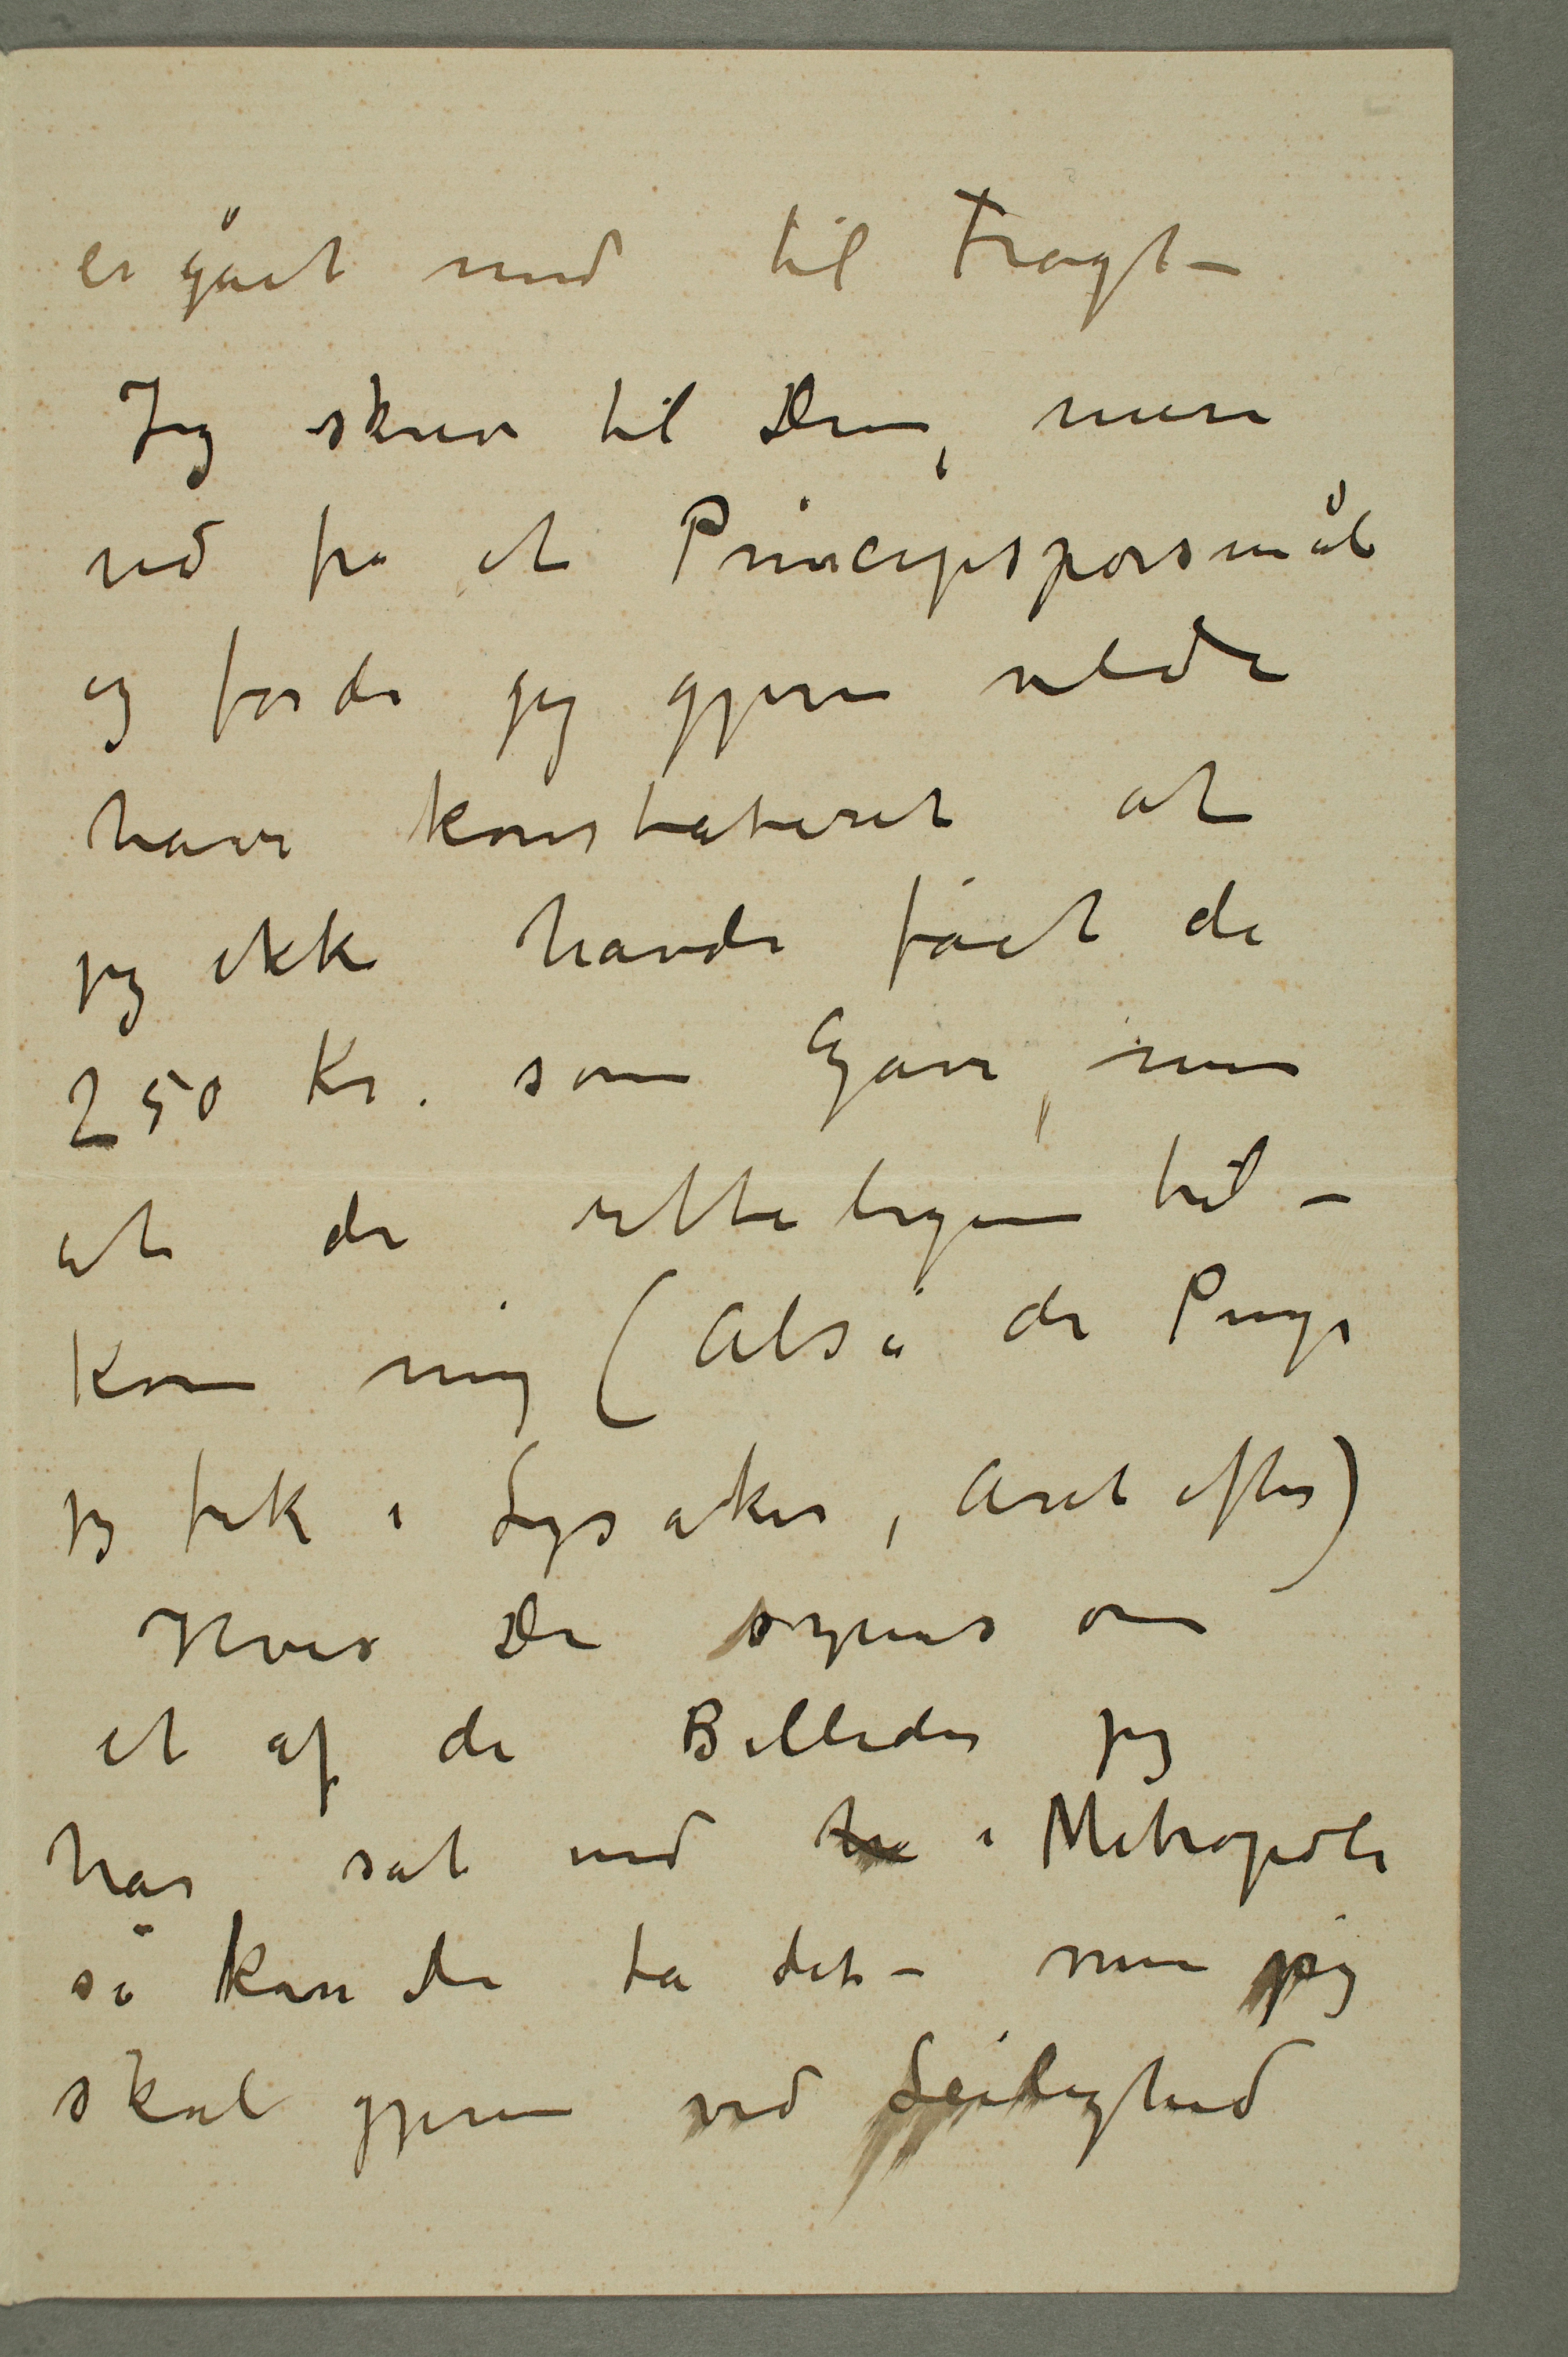 er gået med til Fragt –
Jeg skrev til Dem, mere
ud fra et Princip spørsmål
og fordi jeg gjerne vilde
have konstateret at
jeg ikke havde fået de
250 Kr. som Gave, men
at de retteligen til-
kom mig (Altså de Penge
jeg fik i Lysaker, Året efter)
Hvis De synes om
et af de Billeder jeg
har sat ned i Metropole
så kan De ta det – men jeg
skal gjerne ved Leilighed